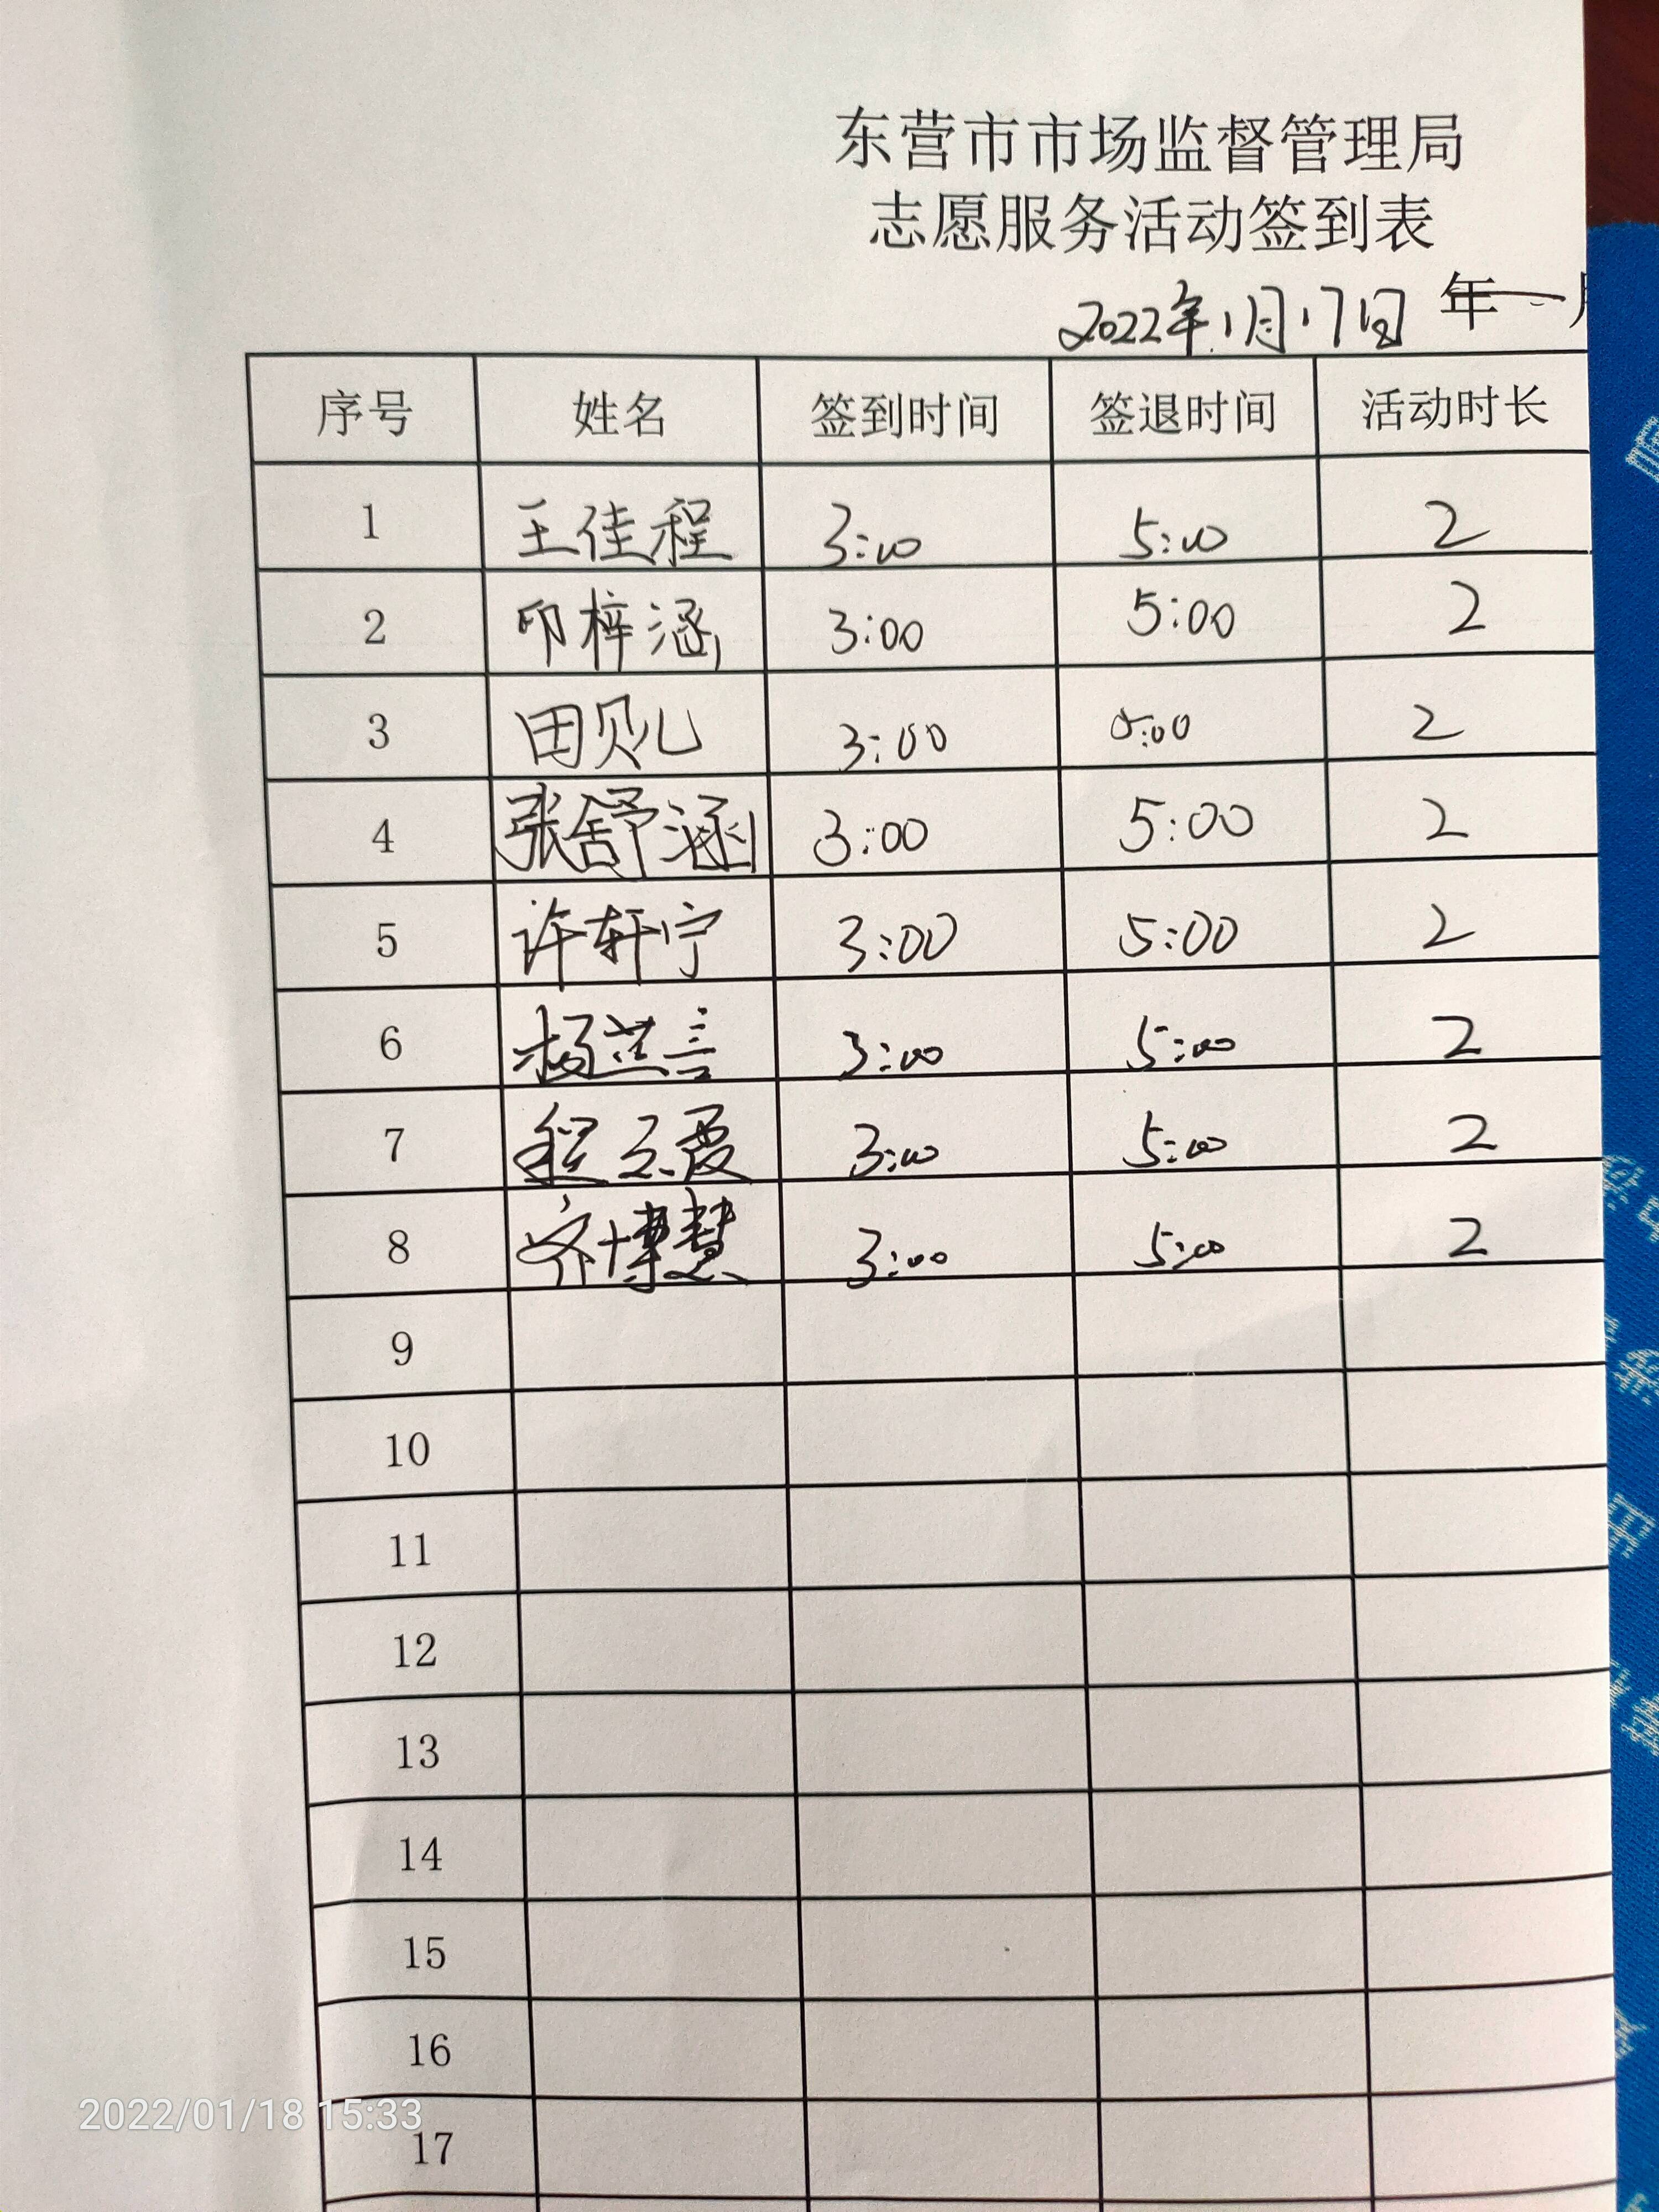 东营市市场监督管理局
志愿服务活动签到表
2022年1月17日 年
序号 姓名 签到时间 签退时间 活动时长
1 王佳程 3:00 5:00 2
2 印梓涵 3:00 5:00 2
3 田贝儿 3:00 5:00 2
4 张舒涵 3:00 5:00 2
5 许轩宁 3:00 5:00 2
6 杨芷言 3:00 5:00 2
7 程云霞 3:00 5:00 2
8 齐博慧 3:00 5:00 2
9
10
11
12
13
14
15
16
17
2022/01/18 15:33